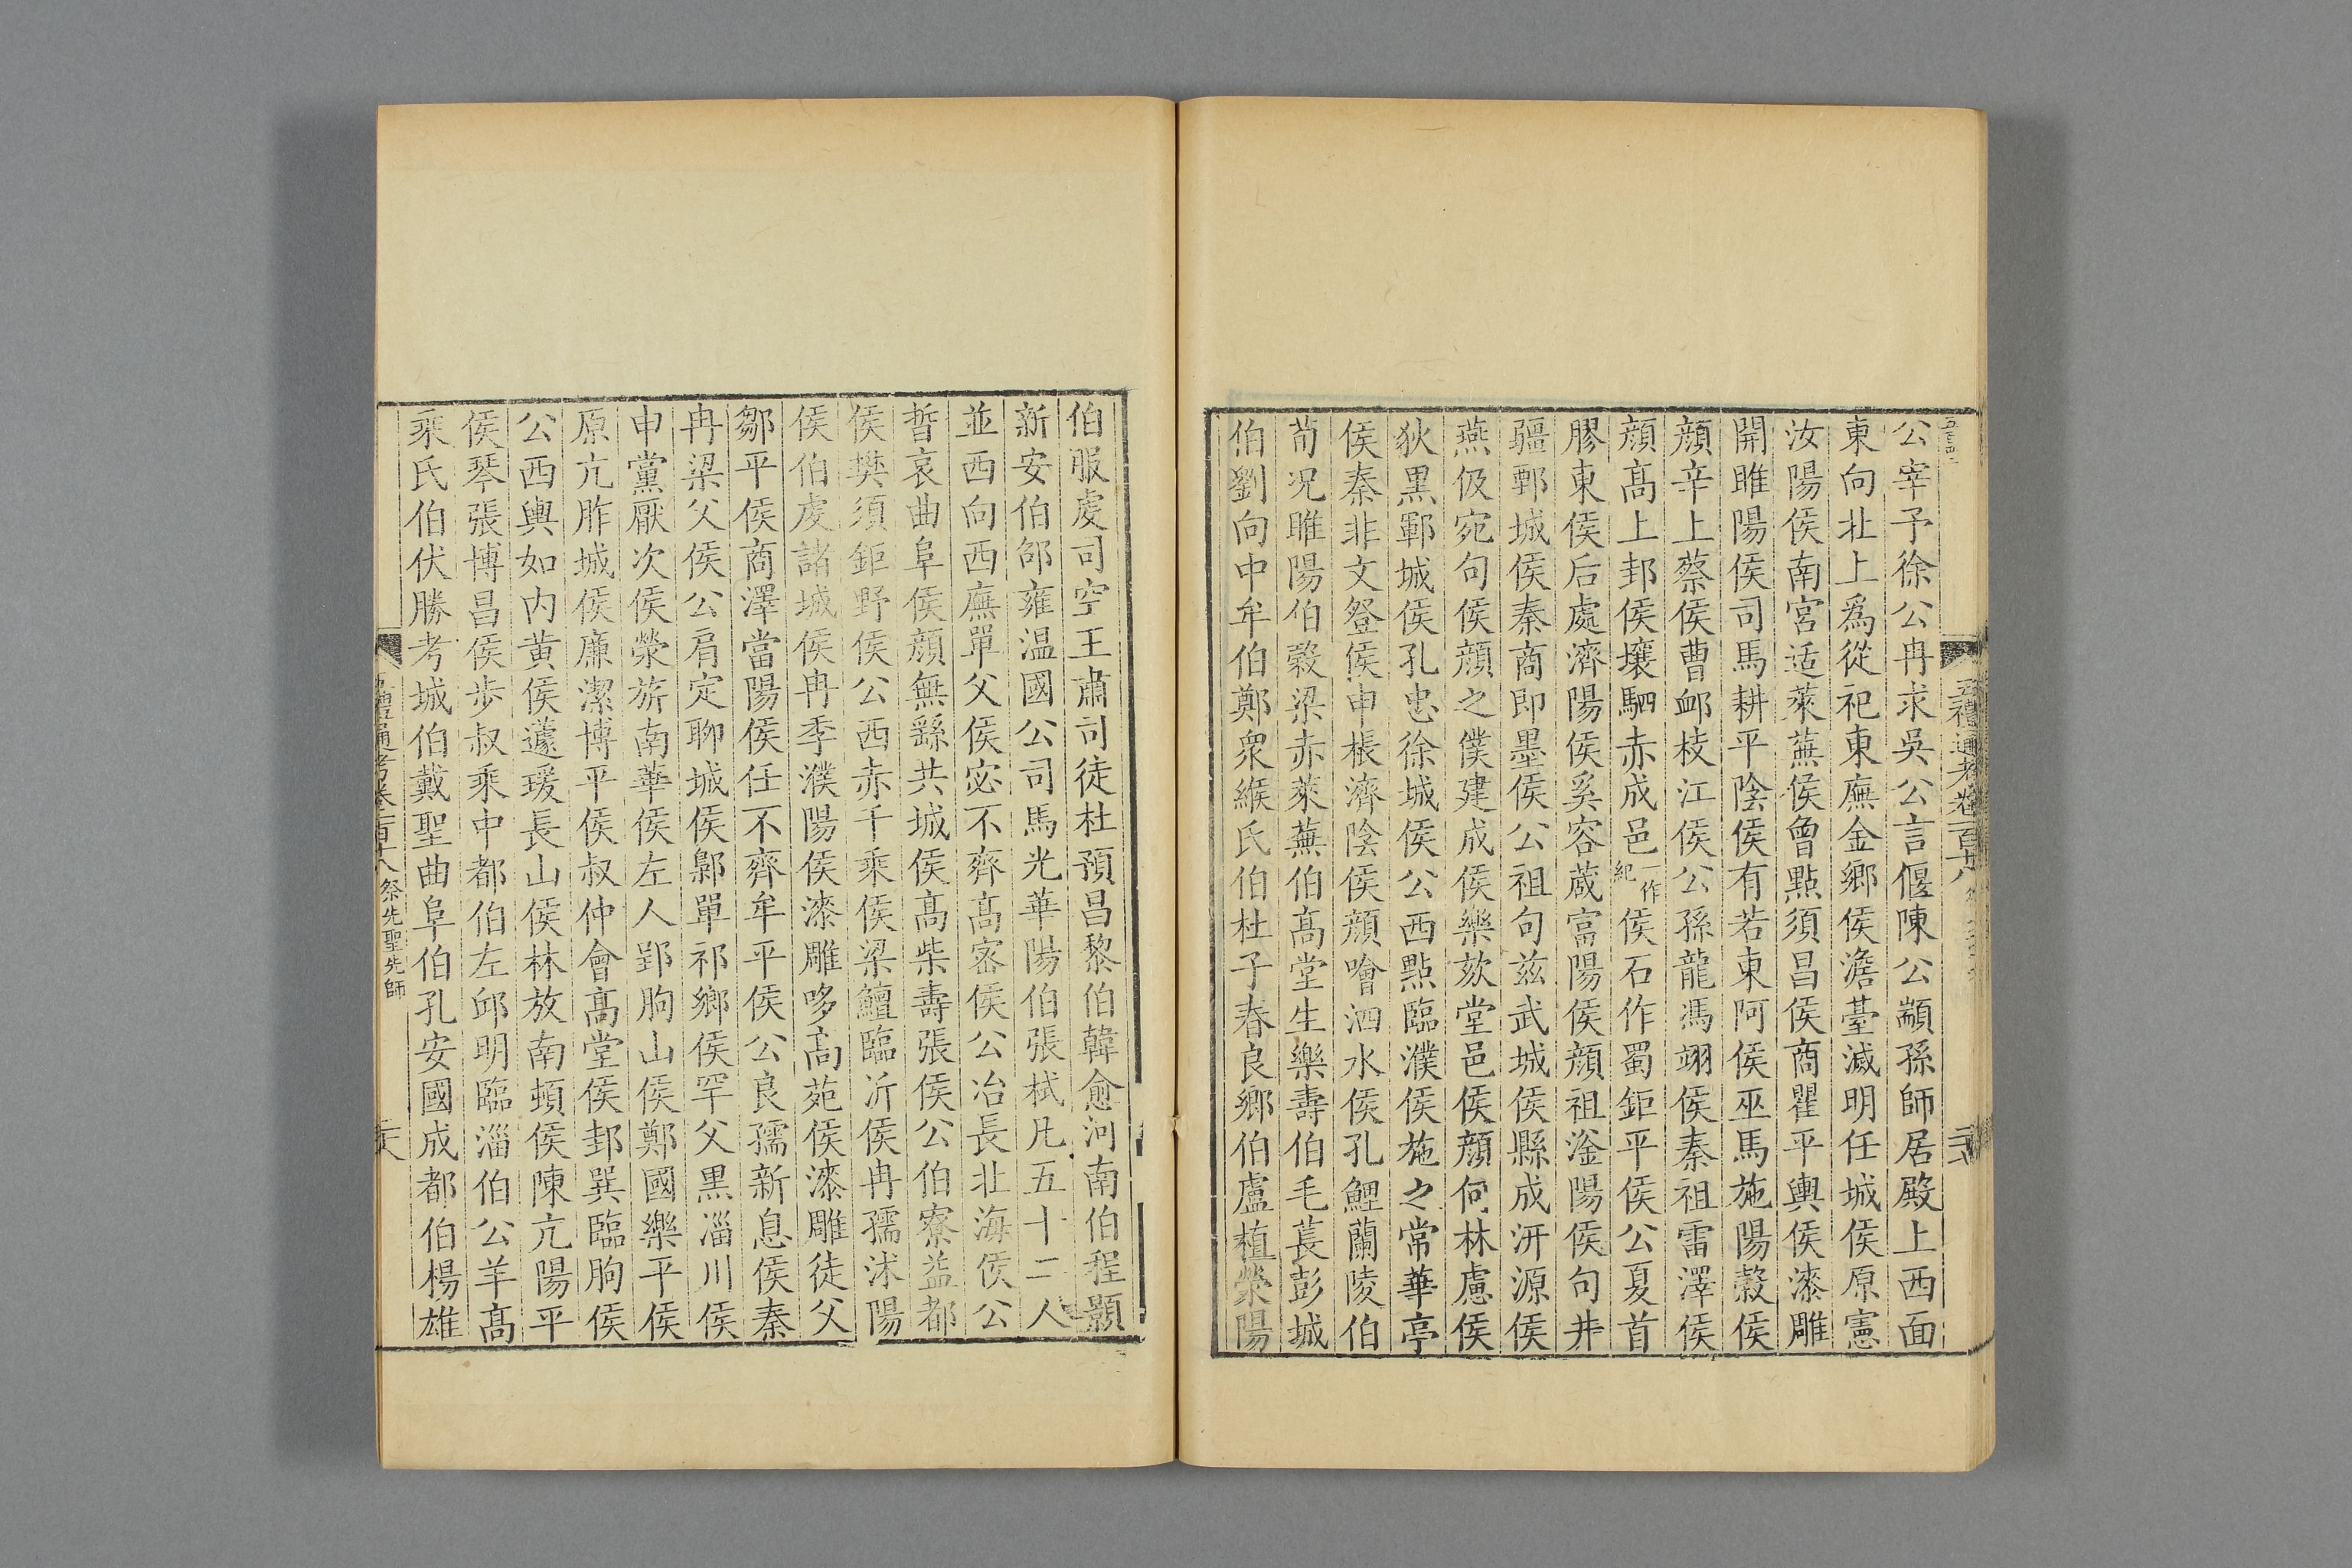 公宰予徐公冉求吳公言偃陳公顓孫師居殿上西面
東向北上爲從祀東廡金鄉侯澹薹滅明任城侯原憲
汝陽侯南宮适萊蕪侯曾點須昌侯商瞿平輿侯漆雕
開睢陽侯司馬耕平陰侯有若東阿侯巫馬施陽穀侯
顔辛上蔡侯曹卹枝江侯公孫龍馮翊侯秦祖雷澤侯
顔高上邽侯壤駟赤成邑一作紀侯石作蜀鉅平侯公夏首
膠東侯后處濟陽侯奚容蒧富陽侯顔祖滏陽侯句井
疆鄄城侯秦商即墨侯公祖句茲武城侯縣成汧源侯
燕伋宛句侯顔之僕建成侯樂欬堂邑侯顔何林慮侯
狄黑鄆城侯孔忠徐城侯公西點臨濮侯施之常華亭
侯秦非文登侯申棖濟陰侯顔噲泗水侯孔鯉蘭陵伯
荀况睢陽伯穀梁赤萊蕪伯高堂生樂壽伯毛萇彭城
伯劉向中牟伯鄭衆緱氏伯杜子春良鄉伯盧植滎陽
伯服虔司空王肅司徒杜預昌黎伯韓愈河南伯程顥
新安伯邵雍温國公司馬光華陽伯張栻凡五十二人
並西向西廡單父侯宓不齊高密侯公冶長北海侯公
晳哀曲阜侯顔無繇共城侯高柴壽張侯公伯寮益都
侯樊須鉅野侯公西赤千乘侯梁鱣臨沂侯冉孺沭陽
侯伯虔諸城侯冉季濮陽侯漆雕哆高苑侯漆雕徒父
鄒平侯商澤當陽侯任不齊牟平侯公良孺新息侯秦
冉梁父侯公肩定聊城侯鄡單祁鄉侯罕父黑淄川侯
申黨厭次侯滎旂南華侯左人郢朐山侯鄭國樂平侯
原亢胙城侯廉潔博平侯叔仲會高堂侯邽巽臨朐侯
公西輿如内黄侯蘧瑗長山侯林放南頓侯陳亢陽平
侯琴張博昌侯步叔乘中都伯左邱明臨淄伯公羊高
乘氏伯伏勝考城伯戴聖曲阜伯孔安國成都伯楊雄
禮通考卷一百十八 祭先聖先師